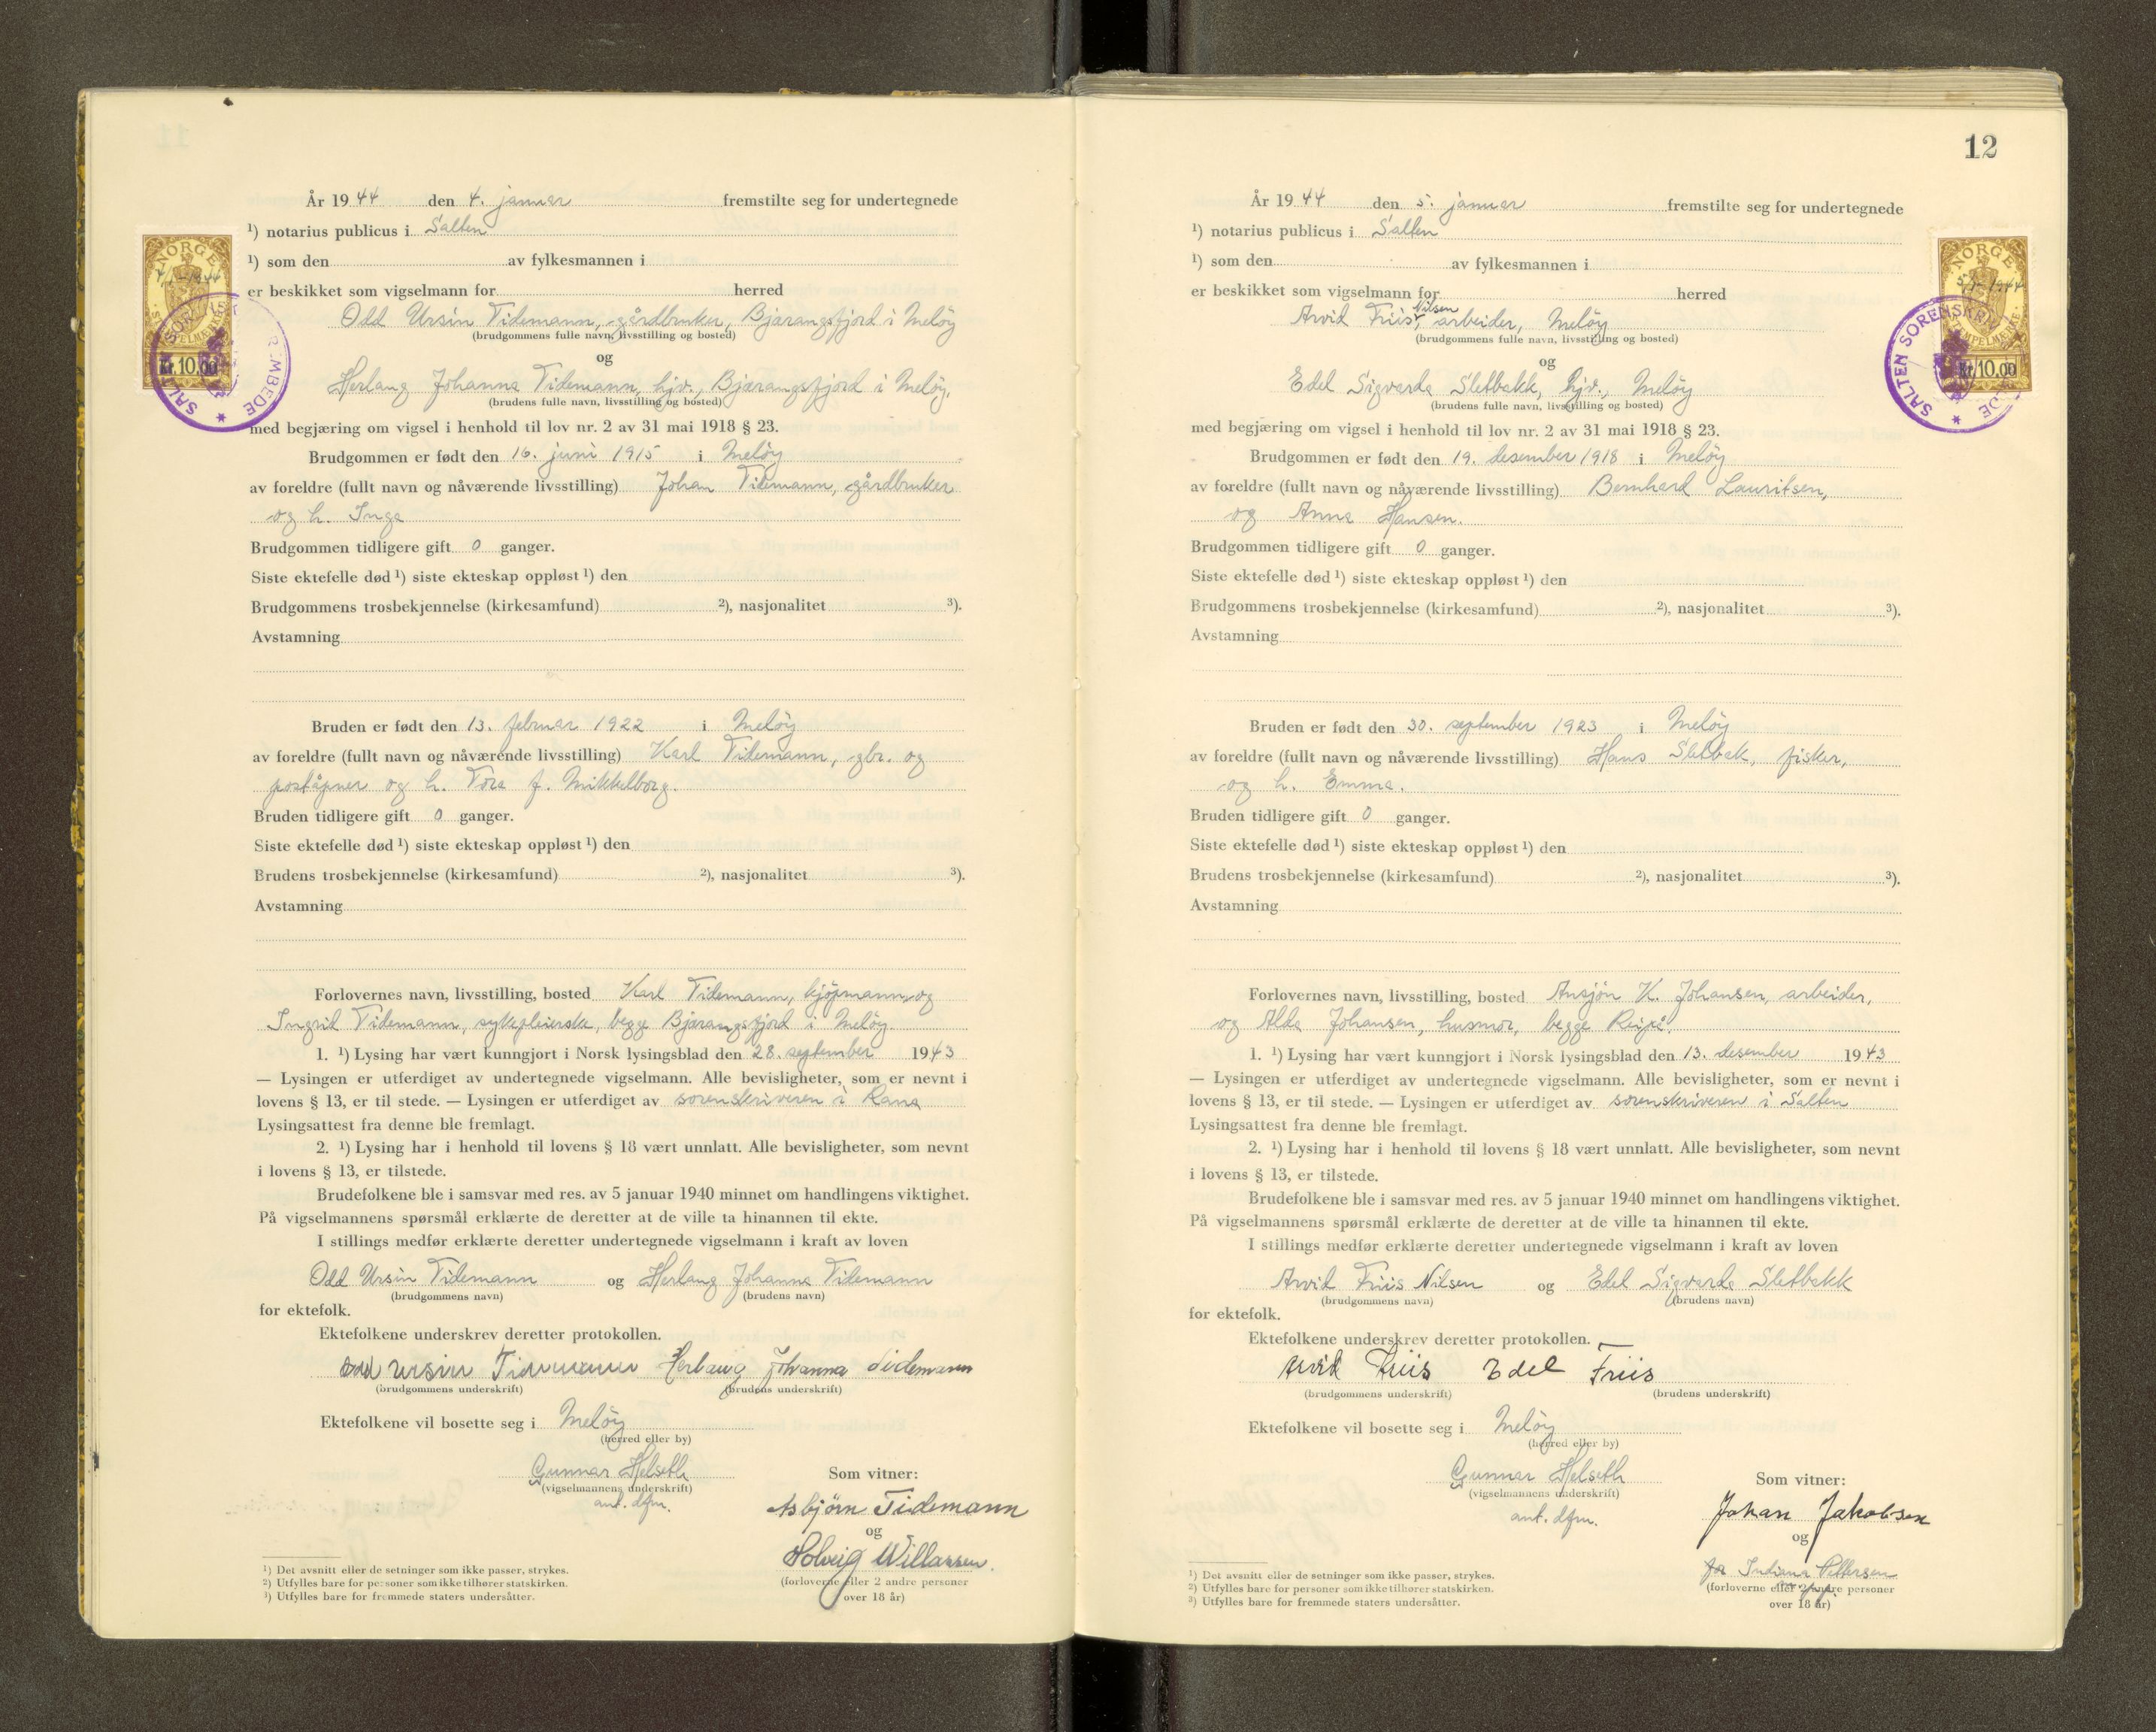 År 1944 den 4. januar fremstilte seg for undertegnede
¹) notarius publicus i Salten
¹) som den av fylkesmannen i
er beskikket som vigselmann for herred
Odd Ursin Tidemann, gårdbruker, Bjærangsfjord i Meløy
(brudgommens fulle navn, livsstilling og bosted)
og
Herlaug Johanna Tidemann, hjv., Bjærangsfjord i Meløy.
(brudens fulle navn, livsstilling og bosted)
med begjæring om vigsel i henhold til lov nr. 2 av 31 mai 1918 § 23.
Brudgommen er født den 16. juni 1915 i Meløy
av foreldre (fullt navn og nåværende livsstilling) Johan Tidemann, gårdbruker
og h. Inga
Brudgommen tidligere gift 0 ganger.
Siste ektefelle død ¹) siste ekteskap oppløst ¹) den
Brudgommens trosbekjennelse (kirkesamfund) ²), nasjonalitet ³).
Avstamning
Bruden er født den 13. februar 1922 i Meløy
av foreldre (fullt navn og nåværende livsstilling) Karl Tidemann, gbr. og
poståpner og h. Tora f. Mikkelborg.
Bruden tidligere gift 0 ganger.
Siste ektefelle død ¹) siste ekteskap oppløst ¹) den
Brudens trosbekjennelse (kirkesamfund) ²), nasjonalitet ³).
Avstamning
Forlovernes navn, livsstilling, bosted Karl Tidemann, kjøpmann og
Ingrid Tidemann, sykepleierske, begge Bjærangsfjord i Meløy.
1. ¹) Lysing har vært kunngjort i Norsk lysingsblad den 28. september 1943
— Lysingen er utferdiget av undertegnede vigselmann. Alle bevisligheter, som er nevnt i
lovens § 13, er til stede. — Lysingen er utferdiget av sorenskriveren i Rana
Lysingsattest fra denne ble fremlagt.
2. ¹) Lysing har i henhold til lovens § 18 vært unnlatt. Alle bevisligheter, som nevnt
i lovens § 13, er tilstede.
Brudefolkene ble i samsvar med res. av 5 januar 1940 minnet om handlingens viktighet.
På vigselmannens spørsmål erklærte de deretter at de ville ta hinannen til ekte.
I stillings medfør erklærte deretter undertegnede vigselmann i kraft av loven
Odd Ursin Tidemann og Herlaug Johanna Tidemann
(brudgommens navn) (brudens navn)
for ektefolk.
Ektefolkene underskrev deretter protokollen.
Odd Ursin Tidemann Herlaug Johanna Tidemann
(brudgommens underskrift) (brudens underskrift)
Ektefolkene vil bosette seg i Meløy
(herred eller by)
Gunnar Helseth Som vitner:
(vigselmannens underskrift)
ant. dfm.
Asbjørn Tidemann
og
Solveig Willassen.
(forloverne eller 2 andre personer
over 18 år)
¹) Det avsnitt eller de setninger som ikke passer, strykes.
²) Utfylles bare for personer som ikke tilhører statskirken.
³) Utfylles bare for fremmede staters undersåtter.
NORGE
4/1-1944
STEMPELMERKE
Kr. 10.00
SALTEN SORENSKRIVEREMBEDE
12
År 1944 den 5. januar fremstilte seg for undertegnede
¹) notarius publicus i Salten
¹) som den av fylkesmannen i
er beskikket som vigselmann for herred
Arvid Friis Nilsen, arbeider, Meløy
(brudgommens fulle navn, livsstilling og bosted)
og
Edel Sigvarda Sletbakk, hjv., Meløy
(brudens fulle navn, livsstilling og bosted)
med begjæring om vigsel i henhold til lov nr. 2 av 31 mai 1918 § 23.
Brudgommen er født den 19. desember 1918 i Meløy
av foreldre (fullt navn og nåværende livsstilling) Bernhard Lauritsen,
og Anna Hansen.
Brudgommen tidligere gift 0 ganger.
Siste ektefelle død ¹) siste ekteskap oppløst ¹) den
Brudgommens trosbekjennelse (kirkesamfund) ²), nasjonalitet ³).
Avstamning
Bruden er født den 30. september 1923 i Meløy
av foreldre (fullt navn og nåværende livsstilling) Hans Sletbak, fisker,
og h. Emma.
Bruden tidligere gift 0 ganger.
Siste ektefelle død ¹) siste ekteskap oppløst ¹) den
Brudens trosbekjennelse (kirkesamfund) ²), nasjonalitet ³).
Avstamning
Forlovernes navn, livsstilling, bosted Ansjön K. Johansen, arbeider,
og Alda Johansen, husmor, begge Reipå.
1. ¹) Lysing har vært kunngjort i Norsk lysingsblad den 13. desember 1943
— Lysingen er utferdiget av undertegnede vigselmann. Alle bevisligheter, som er nevnt i
lovens § 13, er til stede. — Lysingen er utferdiget av sorenskriveren i Salten
Lysingsattest fra denne ble fremlagt.
2. ¹) Lysing har i henhold til lovens § 18 vært unnlatt. Alle bevisligheter, som nevnt
i lovens § 13, er tilstede.
Brudefolkene ble i samsvar med res. av 5 januar 1940 minnet om handlingens viktighet.
På vigselmannens spørsmål erklærte de deretter at de ville ta hinannen til ekte.
I stillings medfør erklærte deretter undertegnede vigselmann i kraft av loven
Arvid Friis Nilsen og Edel Sigvarda Sletbakk
(brudgommens navn) (brudens navn)
for ektefolk.
Ektefolkene underskrev deretter protokollen.
Arvid Friis Edel Friis
(brudgommens underskrift) (brudens underskrift)
Ektefolkene vil bosette seg i Meløy
(herred eller by)
Gunnar Helseth Som vitner:
(vigselmannens underskrift)
ant. dfm.
Johan Jakobsen
og
for Indiana Pettersen
(forloverne eller 2 andre personer
over 18 år)
¹) Det avsnitt eller de setninger som ikke passer, strykes.
²) Utfylles bare for personer som ikke tilhører statskirken.
³) Utfylles bare for fremmede staters undersåtter.
NORGE
5/1-1944
STEMPELMERKE
Kr. 10.00
SALTEN SORENSKRIVEREMBEDE